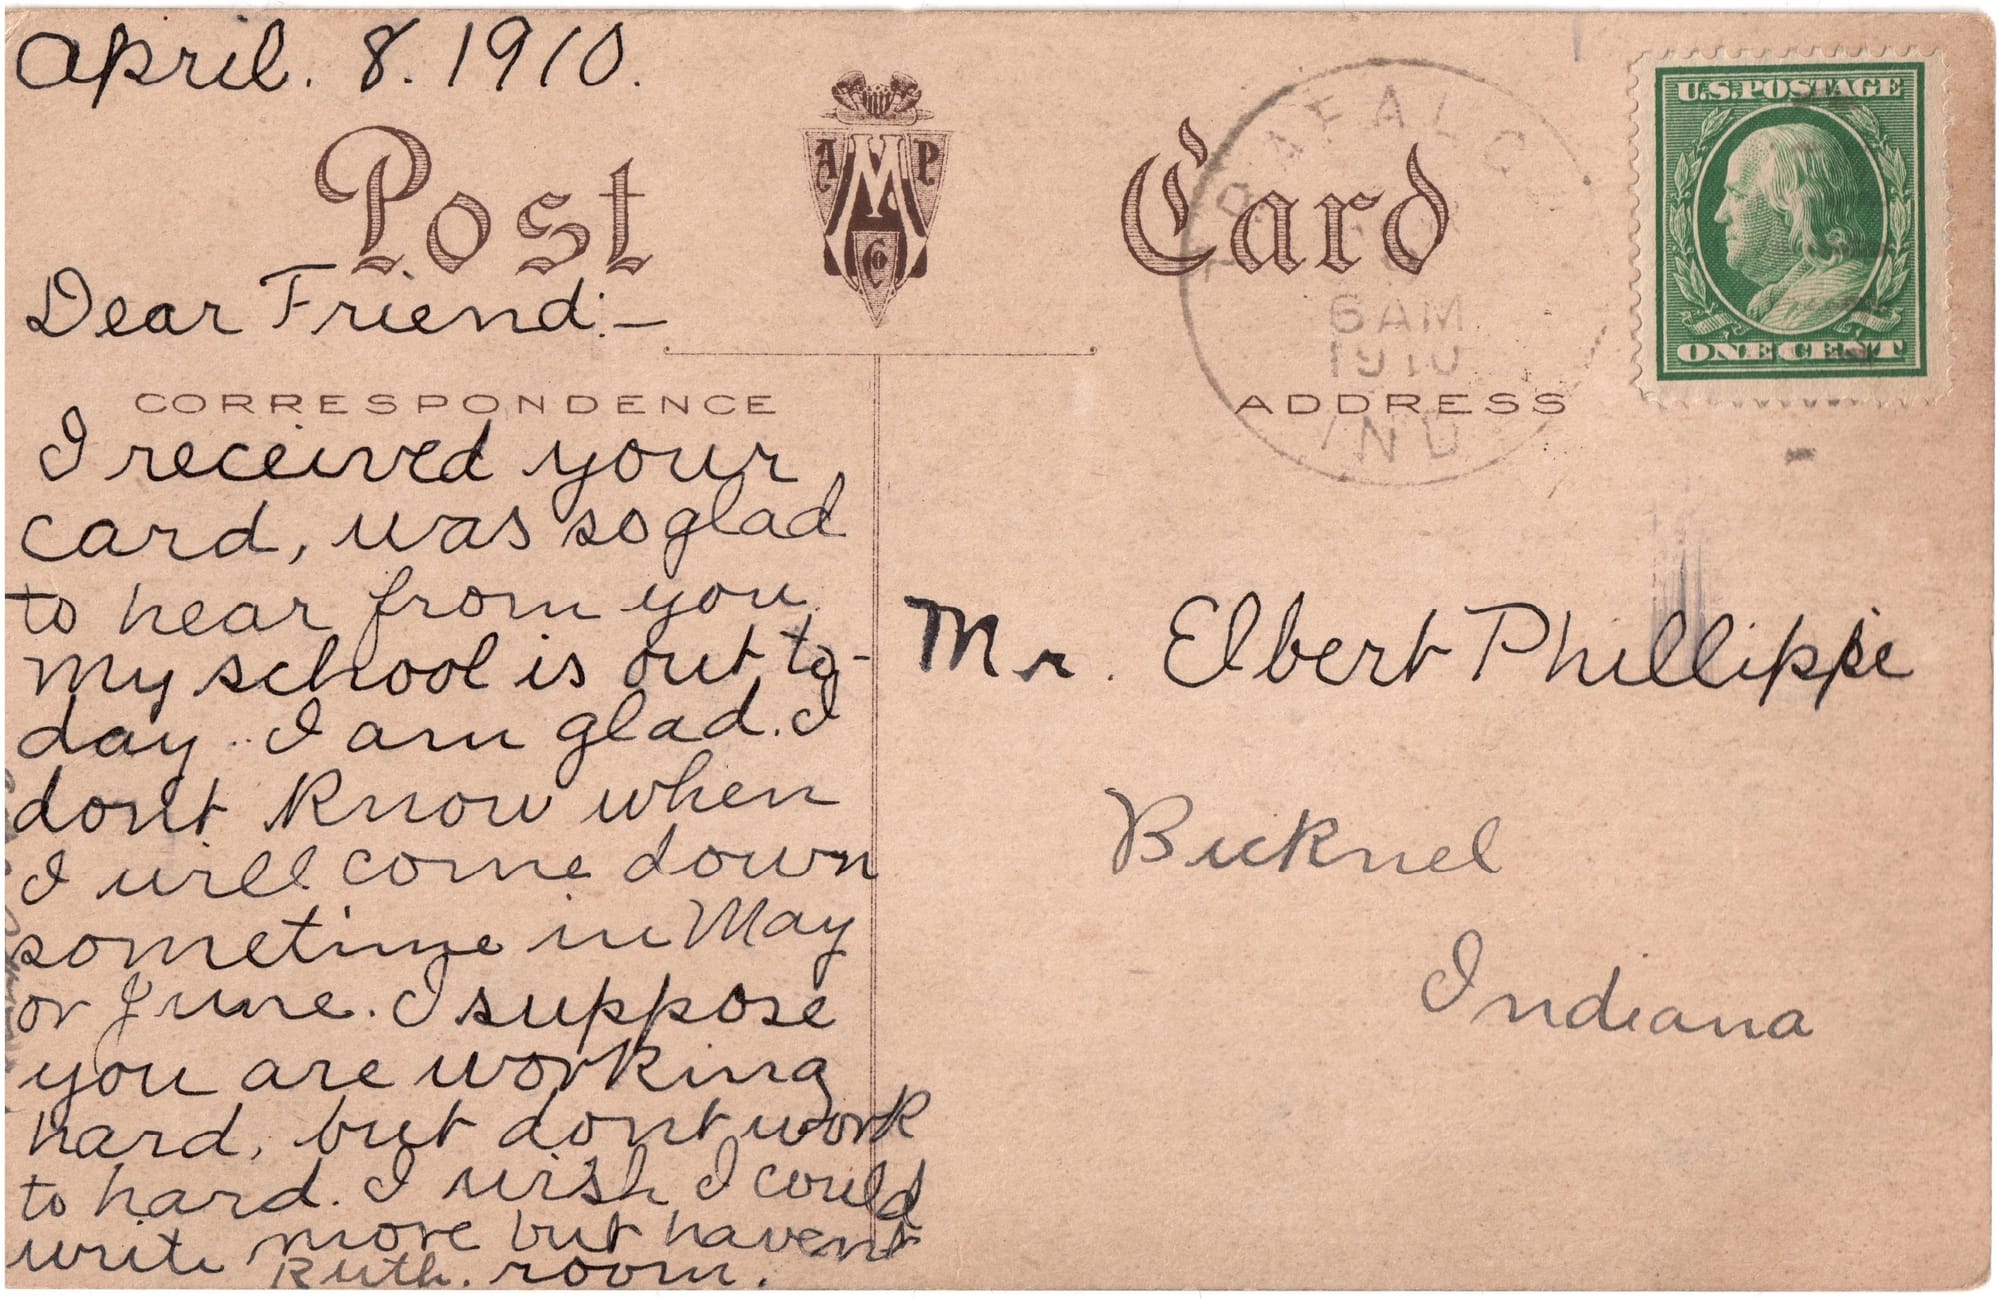 April. 8. 1910.
Post Card
A M P
Co
U.S. POSTAGE
ONE CENT
6 AM
1910
IND
Dear Friend:—
CORRESPONDENCE
ADDRESS
I received your
card, was so glad
to hear from you
my school is out to-
day. I am glad. I
dont know when
I will come down
sometime in May
or June. I suppose
you are working
hard, but dont work
to hard. I wish I could
write more but havent
Ruth. room.
Mr. Elbert Phillippie
Bicknel
Indiana